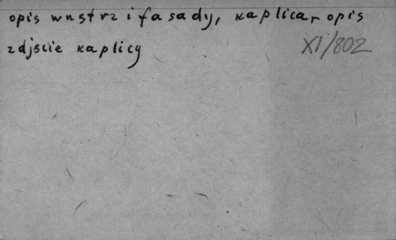 opis wnstrz i fasady, kaplica, opis
zdjscie kaplicy
XI/802